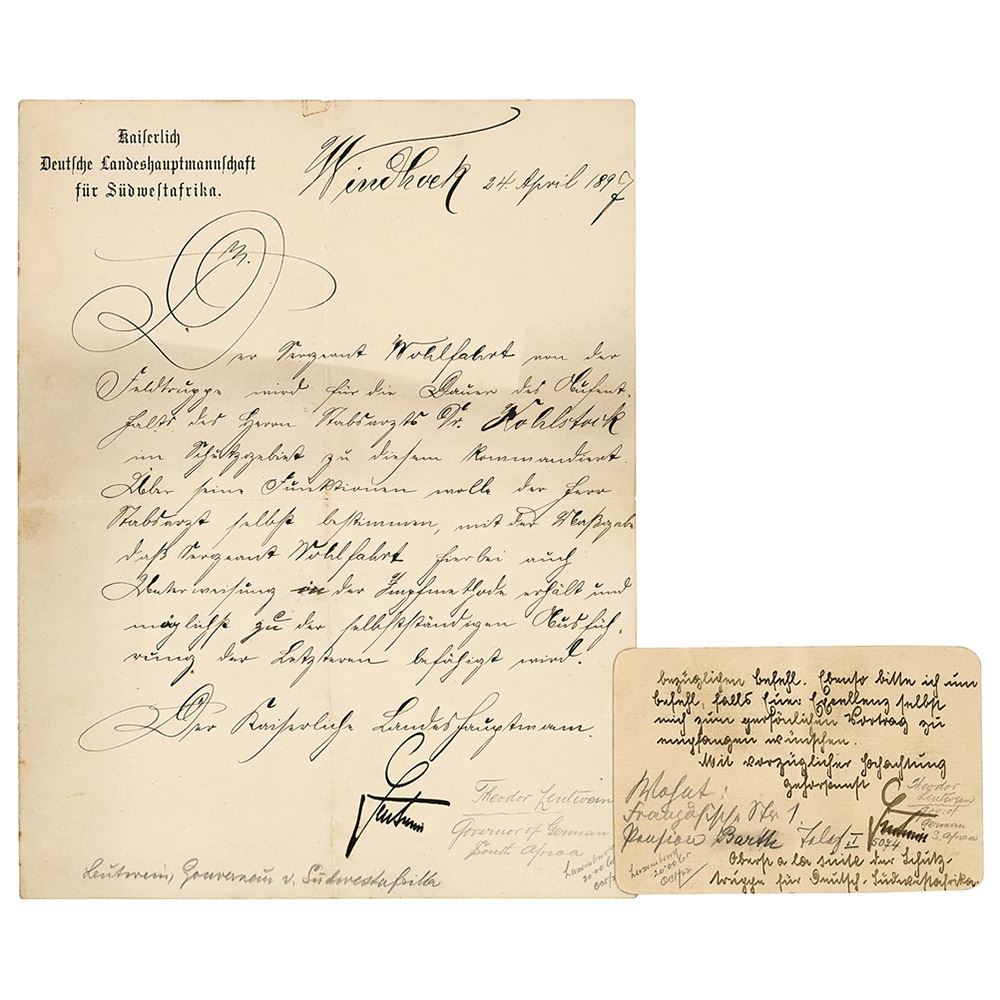 Kaiserlich
Deutsche Landeshauptmannschaft
für Südwestafrika.
Windhoek 24. April 1897
Der Sergeant Wohlfahrt von der
Feldtruppe wird für die Dauer des Aufent-
halts des Herrn Stabsarzts Dr. Kohlstock
im Schutzgebiet zu diesem kommandiert.
Über seine Funktionen wolle der Herr
Stabsarzt selbst bestimmen, mit der Maßgabe
daß Sergeant Wohlfahrt hierbei auch
Unterweisung in der Impfmethode erhält und
möglichst zu der selbstständigen Ausfüh-
rung der Letzteren befähigt wird.
Der Kaiserliche Landeshauptmann.
Leutwein
Theodor Leutwein
Governor of German
South Africa
Leutwein, Gouverneur v. Südwestafrika
bezüglichen Befehl. Ebenso bitte ich um
Befehl, falls Euer Exzellenz selbst
mich zum persönlichen Vortrag zu
empfangen wünschen.
Mit vorzüglicher Hochachtung
gehorsamst
Französische Str 1.
Pension Barth
Leutwein
Theodor
Leutwein
Gov. of
German
S. Africa
Oberst a la suite der Schutz-
truppe für Deutsch-Südwestafrika.